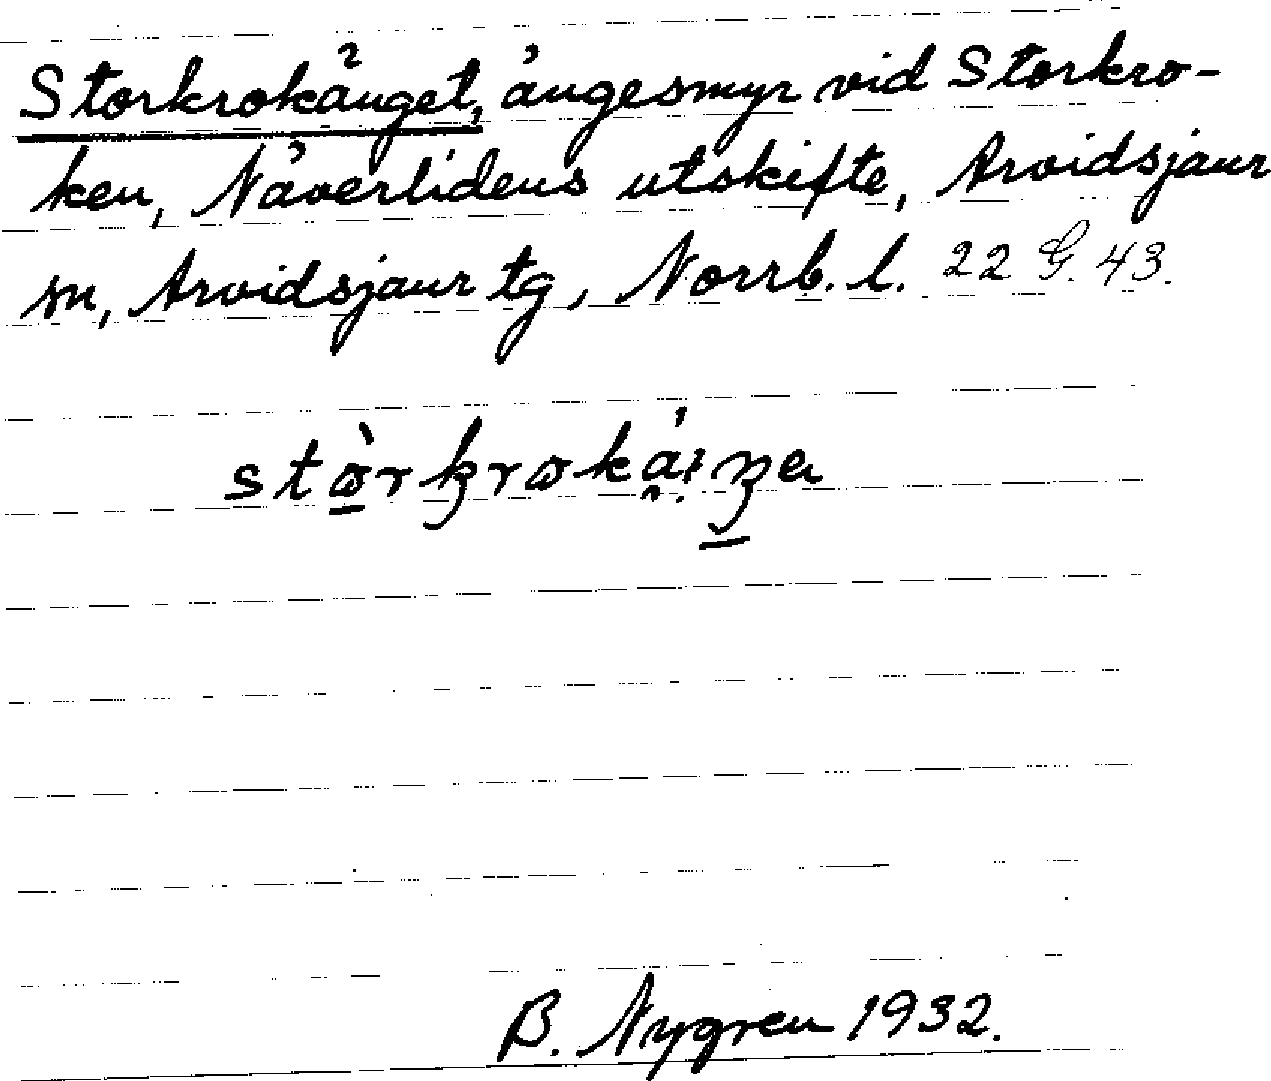 Storkrokänget, ängesmyr vid Storkro-
ken, Näverlidens utskifte, Arvidsjaur
sn, Arvidsjaur tg, Norrb. l. 22 G. 43.
B. Nygren 1932.